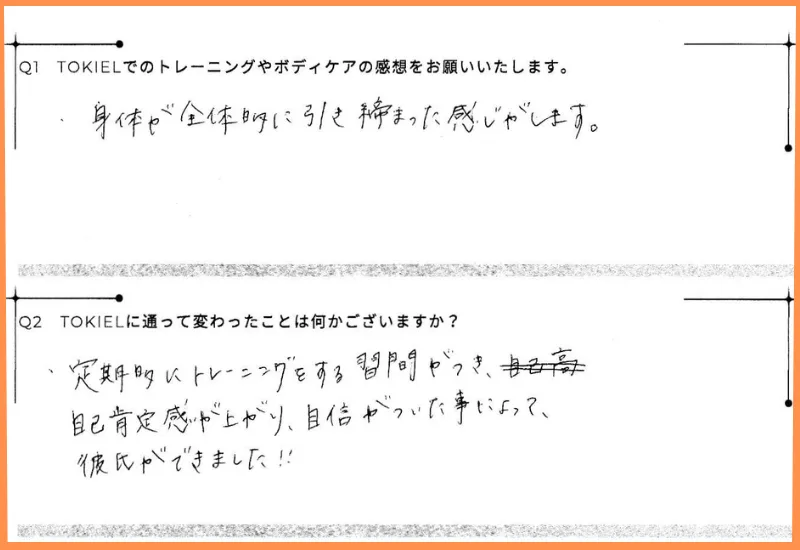 Q1 TOKIELでのトレーニングやボディケアの感想をお願いいたします。
・身体が全体的に引き締まった感じがします。
Q2 TOKIELに通って変わったことは何かございますか？
・定期的にトレーニングをする習間がつき、自己高
自己肯定感が上がり、自信がついた事によって、
彼氏ができました!!